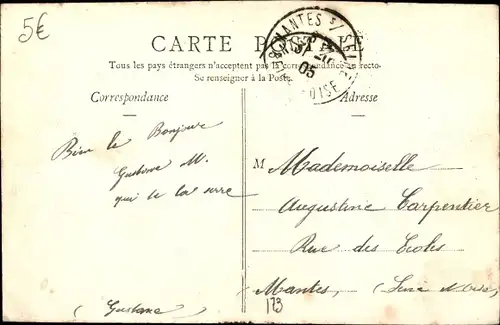 5€
MANTES S/
05
OISE
CARTE POSTALE
Tous les pays étrangers n'acceptent pas la correspondance au recto.
Se renseigner à la Poste.
Correspondance
Adresse
Bien le Bonjour
Gustave M.
qui te la serre
(Gustave
M Mademoiselle
Augustine Carpentier
Rue des Ecoles
Mantes, (Seine et Oise)